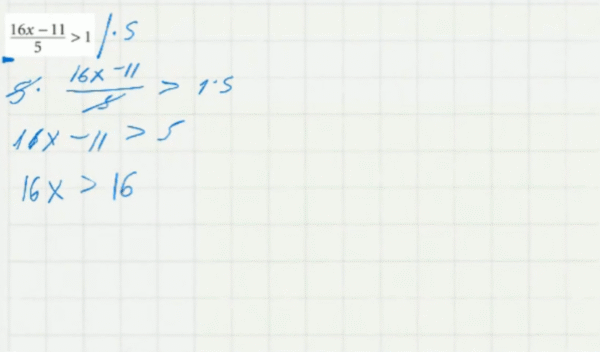 (16x − 11)/5 > 1 / · 5
5 · (16x − 11)/5 > 1·5
16x − 11 > 5
16x > 16